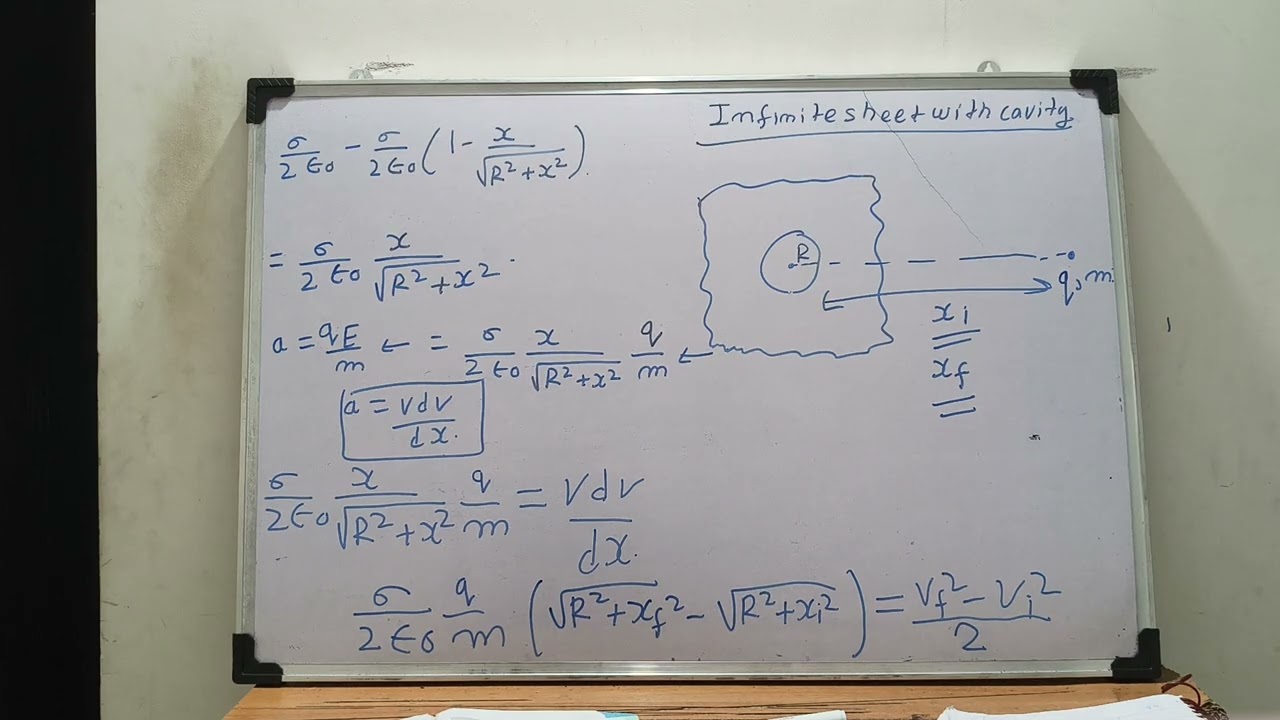 Infinite sheet with cavity
σ/2ϵ₀ - σ/2ϵ₀ (1 - x/√(R²+x²)).
= σ/2ϵ₀ x/√(R²+x²).
a = qE/m ← = σ/2ϵ₀ x/√(R²+x²) q/m ←
a = vdv/dx.
σ/2ϵ₀ x/√(R²+x²) q/m = vdv/dx.
σ/2ϵ₀ q/m (√(R²+x_f²) - √(R²+x_i²)) = (v_f² - v_i²)/2
R
q, m
x_i
x_f